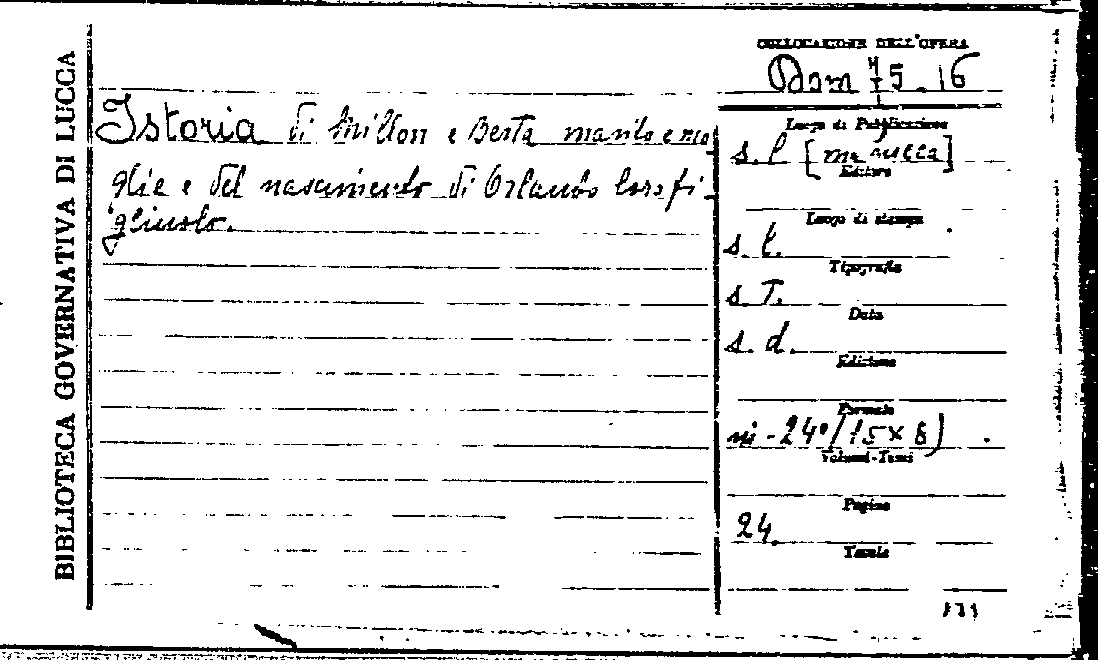 BIBLIOTECA GOVERNATIVA DI LUCCA
COLLOCAZIONE DELL'OPERA
15.16
Istoria di Millon e Berta marito e mo
glie e del nascimento di Orlando loro fi-
gliuolo.
Luogo di Pubblicazione
s. l [ma Lucca]
Editore
Luogo di stampa
s. l.
Tipografia
s. T.
Data
s. d.
Edizione
Formato
in-24° (15 x 8)
Volumi-Tomi
Pagine
24.
Tavole